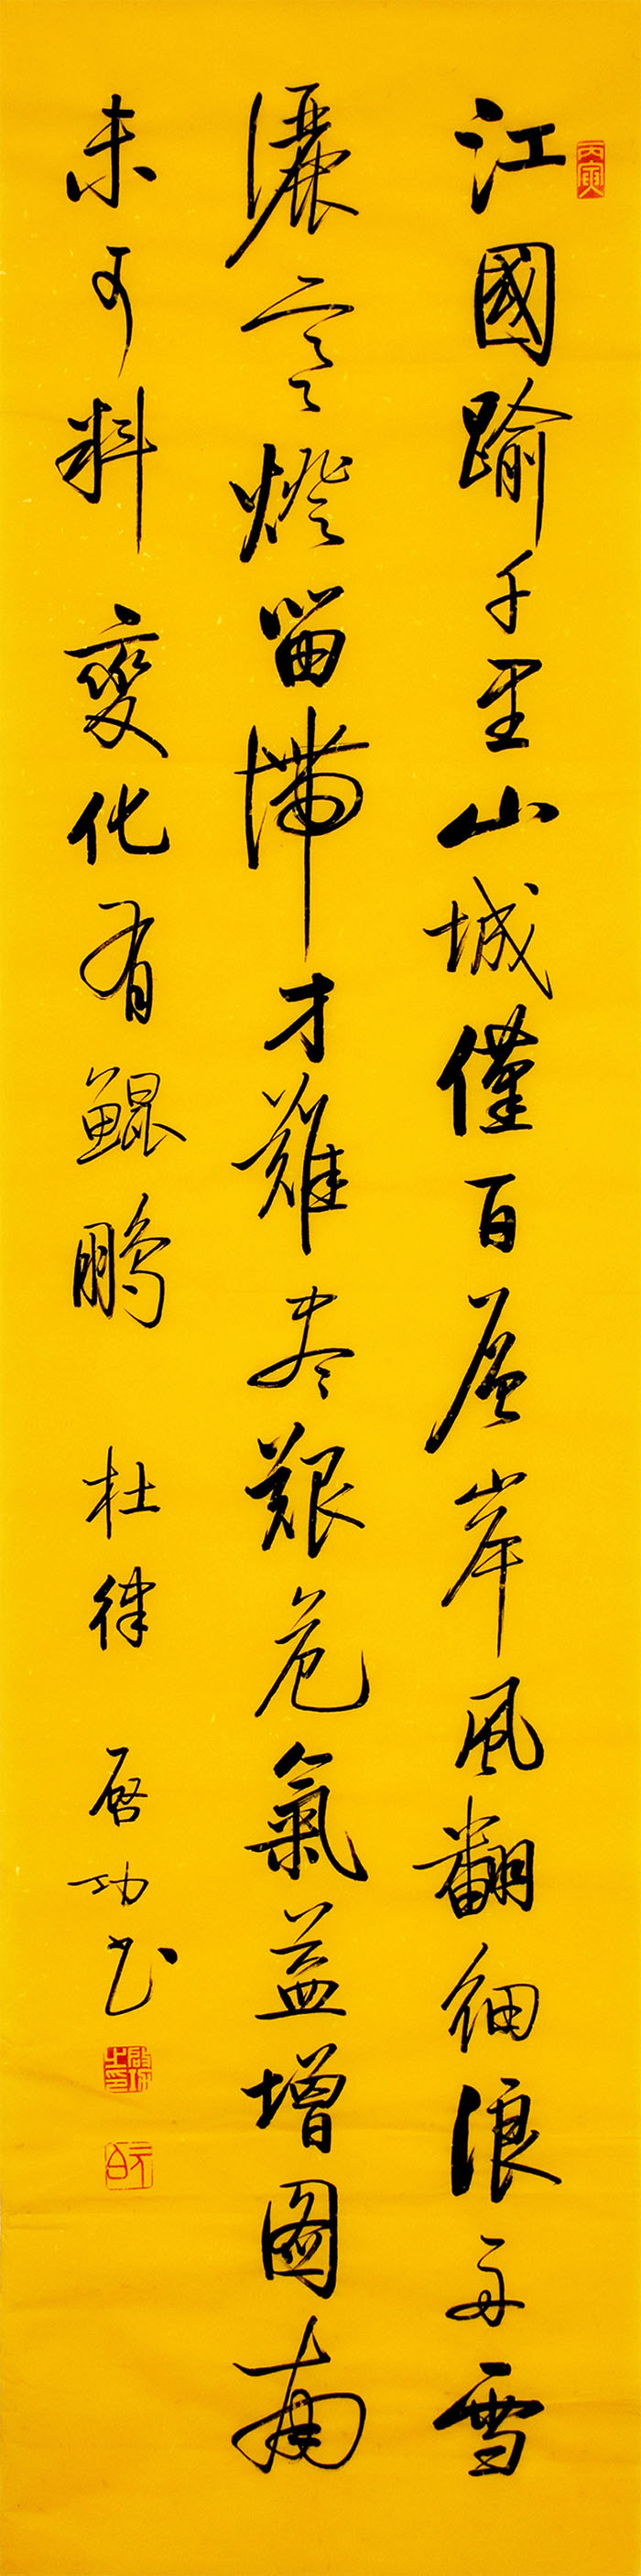 丙寅
江國踰千里山城僅百層岸風翻細浪舟雪
灑寒燈留滯才難盡艱危氣益增圖南
未可料變化有鯤鵬 杜律 啓功書
啟功之印
元白